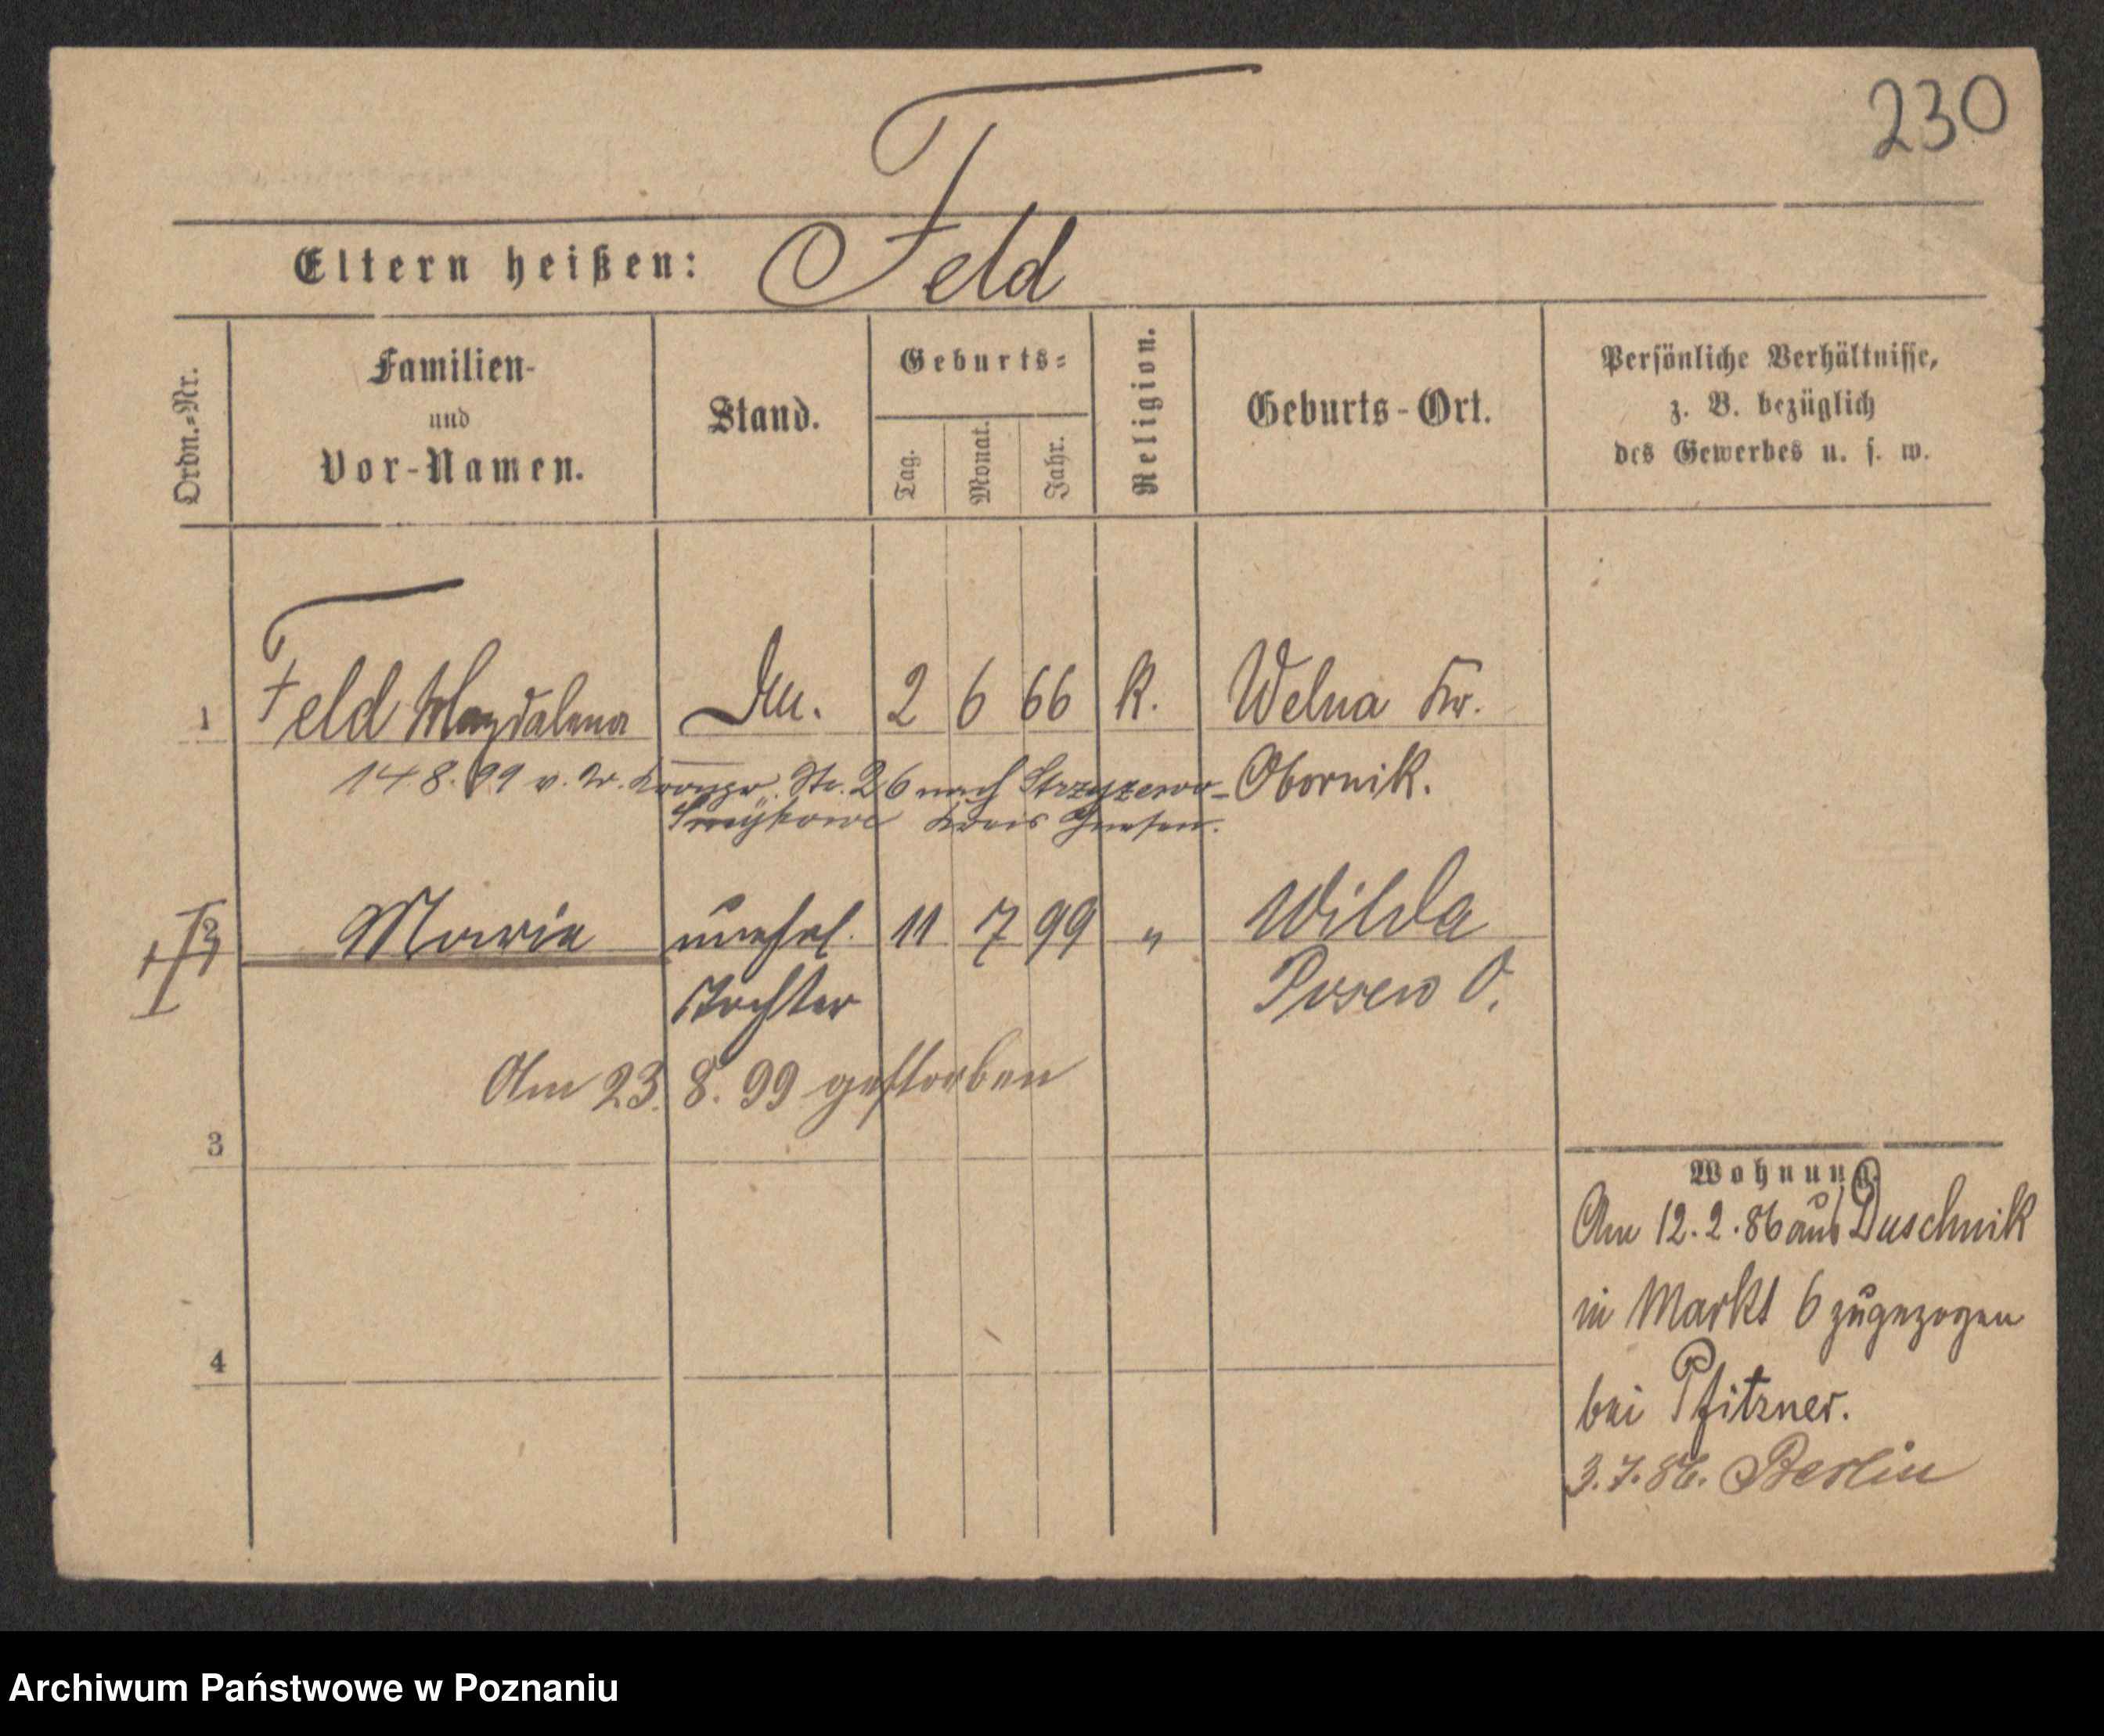 230
Eltern heißen: Feld
Ordn.-Nr.
Familien-
und
Vor-Namen.
Stand.
Geburts-
Tag.
Monat.
Jahr.
Religion.
Geburts-Ort.
Persönliche Verhältnisse,
z. B. bezüglich
des Gewerbes u. s. w.
1 Feld Magdalena 2 6 66 k. Welna Kr.
Obornik.
14 8. 99 v. Str. 26 nach Strzyzewo-
Smykowe Kreis Gnesen.
2 Marie unehel. 11 7 99 " Wilda
Tochter Posen O.
Am 23. 8. 99 gestorben
3
4
Wohnung.
Am 12. 2. 86 aus Duschnik
in Markt 6 zugezogen
bei Pfitzner.
3. 7. 86. Berlin
Archiwum Państwowe w Poznaniu